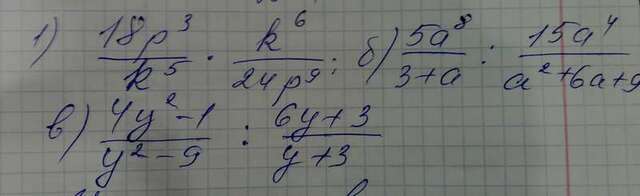 1) 18p³/k⁵ · k⁶/24p⁹; б) 5a⁸/3+a : 15a⁴/a²+6a+9
в) 4y²-1/y²-9 : 6y+3/y+3